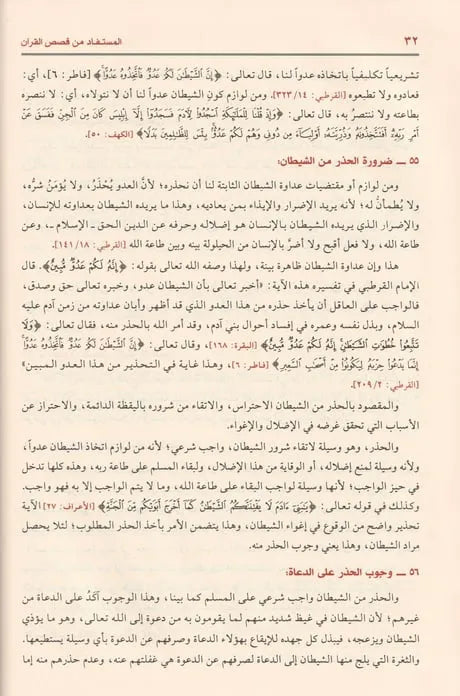 ٣٢
المستفاد من قصص القرآن
تشريعياً تكليفياً باتخاذه عدواً لنا، قال تعالى: ﴿إِنَّ الشَّيْطَانَ لَكُمْ عَدُوٌّ فَاتَّخِذُوهُ عَدُوًّا﴾ [فاطر: ٦]، أي:
فعادوه ولا تطيعوه [القرطبي: ٣٢٣/١٤]. ومن لوازم كون الشيطان عدواً لنا أن لا نتولاه، أي: لا ننتصره
بطاعته ولا ننتصرُ به، قال تعالى: ﴿وَإِذْ قُلْنَا لِلْمَلَائِكَةِ اسْجُدُوا لِآدَمَ فَسَجَدُوا إِلَّا إِبْلِيسَ كَانَ مِنَ الْجِنِّ فَفَسَقَ عَنْ
أَمْرِ رَبِّهِ أَفَتَتَّخِذُونَهُ وَذُرِّيَّتَهُ أَوْلِيَاءَ مِن دُونِي وَهُمْ لَكُمْ عَدُوٌّ بِئْسَ لِلظَّالِمِينَ بَدَلًا﴾ [الكهف: ٥٠].
٥٥ ــ ضرورة الحذر من الشيطان:
ومن لوازم أو مقتضيات عداوة الشيطان الثابتة لنا أن نحذره؛ لأن العدو يُحْذَرُ، ولا يُؤمَنُ شرُّه،
ولا يُطمأنُّ له؛ لأنه يريد الإضرار والإيذاء بمن يعاديه، وهذا ما يريده الشيطان بعداوته للإنسان،
والإضرار الذي يريده الشيطان بالإنسان هو إضلاله وحرفه عن الدين الحق ـ الإسلام ـ، وعن
طاعة الله، ولا فعل أقبح ولا أضرَّ بالإنسان من الحيلولة بينه وبين طاعة الله [القرطبي: ١٤١/١٨].
هذا وإن عداوة الشيطان ظاهرة بينة، ولهذا وصفه الله تعالى بقوله: ﴿إِنَّهُ لَكُمْ عَدُوٌّ مُّبِينٌ﴾. قال
الإمام القرطبي في تفسيره هذه الآية: «أخبر تعالى بأن الشيطان عدو، وخبره تعالى حق وصدق،
فالواجب على العاقل أن يأخذ حذره من هذا العدو الذي قد أظهر وأبان عداوته من زمن آدم عليه
السلام، وبذل نفسه وعمره في إفساد أحوال بني آدم، وقد أمر الله بالحذر منه، فقال تعالى: ﴿وَلَا
تَتَّبِعُوا خُطُوَاتِ الشَّيْطَانِ إِنَّهُ لَكُمْ عَدُوٌّ مُّبِينٌ﴾ [البقرة: ١٦٨]، وقال تعالى: ﴿إِنَّ الشَّيْطَانَ لَكُمْ عَدُوٌّ فَاتَّخِذُوهُ عَدُوًّا
إِنَّمَا يَدْعُوا حِزْبَهُ لِيَكُونُوا مِنْ أَصْحَابِ السَّعِيرِ﴾ [فاطر: ٦]، وهذا غاية في التحذير من هذا العدو المبين»
[القرطبي: ٢٠٩/٢].
والمقصود بالحذر من الشيطان الاحتراس، والاتقاء من شروره باليقظة الدائمة، والاحتراز عن
الأسباب التي تحقق غرضه في الإضلال والإغواء.
والحذر، وهو وسيلة لاتقاء شرور الشيطان، واجب شرعي؛ لأنه من لوازم اتخاذ الشيطان عدواً،
ولأنه وسيلة لمنع إضلاله، أو الوقاية من هذا الإضلال، ولبقاء المسلم على طاعة ربه، وهذه كلها تدخل
في حيز الواجب؛ لأنها وسيلة لواجب البقاء على طاعة الله، وما لا يتم الواجب إلا به فهو واجب.
وكذلك في قوله تعالى: ﴿يَا بَنِي آدَمَ لَا يَفْتِنَنَّكُمُ الشَّيْطَانُ كَمَا أَخْرَجَ أَبَوَيْكُم مِّنَ الْجَنَّةِ﴾ [الأعراف: ٢٧] الآية
تحذير واضح من الوقوع في إغواء الشيطان، وهذا يتضمن الأمر بأخذ الحذر المطلوب؛ لئلا يحصل
مراد الشيطان، وهذا يعني وجوب الحذر منه.
٥٦ ــ وجوب الحذر على الدعاة:
والحذر من الشيطان واجب شرعي على المسلم كما بينا، وهذا الوجوب آكدُ على الدعاة من
غيرهم؛ لأن الشيطان في غيظ شديد منهم لما يقومون به من دعوة إلى الله تعالى، وهو ما يؤذي
الشيطان ويزعجه، فيبذل كل جهده للإيقاع بهؤلاء الدعاة وصرفهم عن الدعوة بأي وسيلة يستطيعها.
والثغرة التي يلج منها الشيطان إلى الدعاة لصرفهم عن الدعوة هي غفلتهم عنه، وعدم حذرهم منه إما